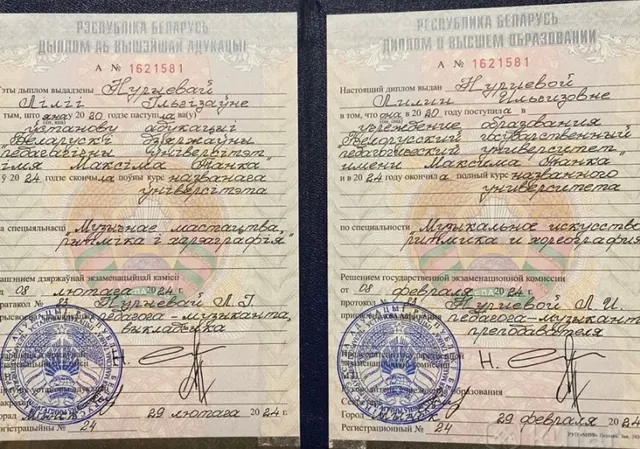 РЭСПУБЛІКА БЕЛАРУСЬ
ДЫПЛОМ АБ ВЫШЭЙШАЙ АДУКАЦЫІ
А № 1621581
Гэты дыплом выдадзены Нурыевай
Лілії Ільгізаўне
тым, што яна 20 20 годзе паступіла ва(у)
установу адукацыі
"Беларускі дзяржаўны
педагагічны ўніверсітэт
імя Максіма Танка"
ў 2024 годзе скончыла поўны курс названага
ўніверсітэта
па спецыяльнасці "Музычнае мастацтва,
рытміка і харэаграфія"
Рашэннем дзяржаўнай экзаменацыйнай камісіі
ад 08 лютага 2024 г.
пратакол №
педагога-музыканта,
выкладчыка
29 лютага 2024 г.
Рэгістрацыйны № 24
РЕСПУБЛИКА БЕЛАРУСЬ
ДИПЛОМ О ВЫСШЕМ ОБРАЗОВАНИИ
А № 1621581
Настоящий диплом выдан Нуриевой
Лилии Ильгизовне
в том, что она в 20 20 году поступила в
учреждение образования
"Белорусский государственный
педагогический университет
имени Максима Танка"
и в 2024 году окончила полный курс названного
университета
по специальности "Музыкальное искусство,
ритмика и хореография"
Решением государственной экзаменационной комиссии
от 08 февраля 2024 г.
протокол №
педагога-музыканта,
преподавателя
Город
29 февраля 2024 г.
Регистрационный № 24